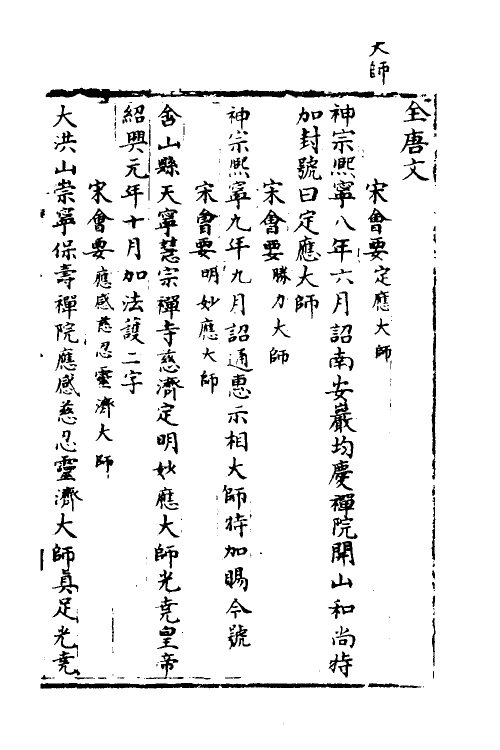 大師
全唐文
宋會要定應大師
神宗熈寧八年六月詔南安巖均慶禪院開山和尚特
加封號曰定應大師
宋會要勝力大師
神宗熈寧九年九月詔通惠示相大師特加賜今號
宋會要明妙應大師
含山縣天寧慧宗禪寺慈濟定明妙應大師光堯皇帝
紹興元年十月加法護二字
宋會要應感慈忍靈濟大師
大洪山崇寧保壽禪院應感慈忍靈濟大師真足光堯